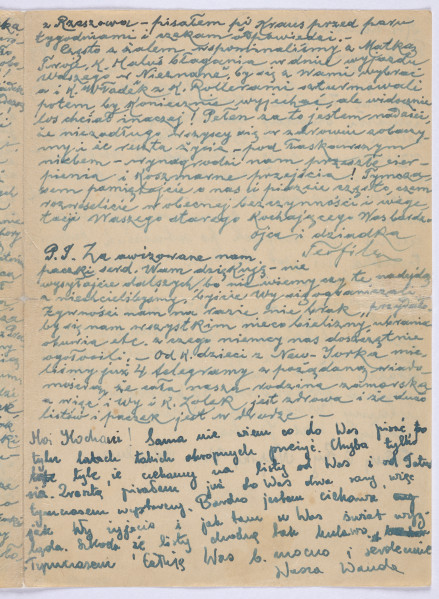 z Rzeszowa – pisałem pi Kraus przed paru
tygodniami i czekam odpowiedzi. –
Często z żalem, wspominaliśmy z Matką
Twoją, K. Haluś błagania w dniu wyjazdu
Waszego w Nieznane, by się z Wami wybrać
a i K. Władek z K. Rollerami szturmowali
potem by koniecznie wyjechać, ale widocznie
los chciał inaczej! Pełen za to jestem nadziei,
że niezadługo wszyscy się w zdrowiu zobaczy
my i że reszta życia – pod łaskawszym
niebem – wynagrodzi nam przeszłe cier-
pienia i koszmarne przejścia! Tymcza
sem pamiętajcie o nas i piszcie często, czem
rozweselicie w obecnej bezczynności i wege
tacji Waszego starego kochającego Was bardzo
ojca i dziadka
Teofila
P.S. Za awizowane nam
paczki serd. Wam dziękuję – nie
wysyłajcie dalszych, bo nie wiemy czy te nadejdą
a niechcielibyśmy, byście Wy się ograniczali.
Żywności nam na razie nie brak, przydało
by się nam wszystkim nieco bielizny, ubrania
obuwia etc. z czego niemcy nas doszczętnie
ogłocili. – Od K. dzieci z New-Yorka mie
liśmy już 4 telegramy z pożądaną wiado
mością, że cała nasza rodzina zamorska
a więc i Wy i K. Lolek jest zdrowa i że dużo
listów i paczek jest w drodze –
Moi Kochani! Sama nie wiem co do Was pisać po
tylu latach takich okropnych przeżyć. Chyba tylko
tyle, że czekamy na listy od Was i od
pisałam już do Was dwa razy, więc
tymczasem Bardzo jestem ciekawa
jak Wy żyjecie i jak tam u Was świat wyg-
ląda. Szkoda że listy wędrują tak
Tymczasem! Całuję Was b. mocno i serdecznie
Wasza Wanda